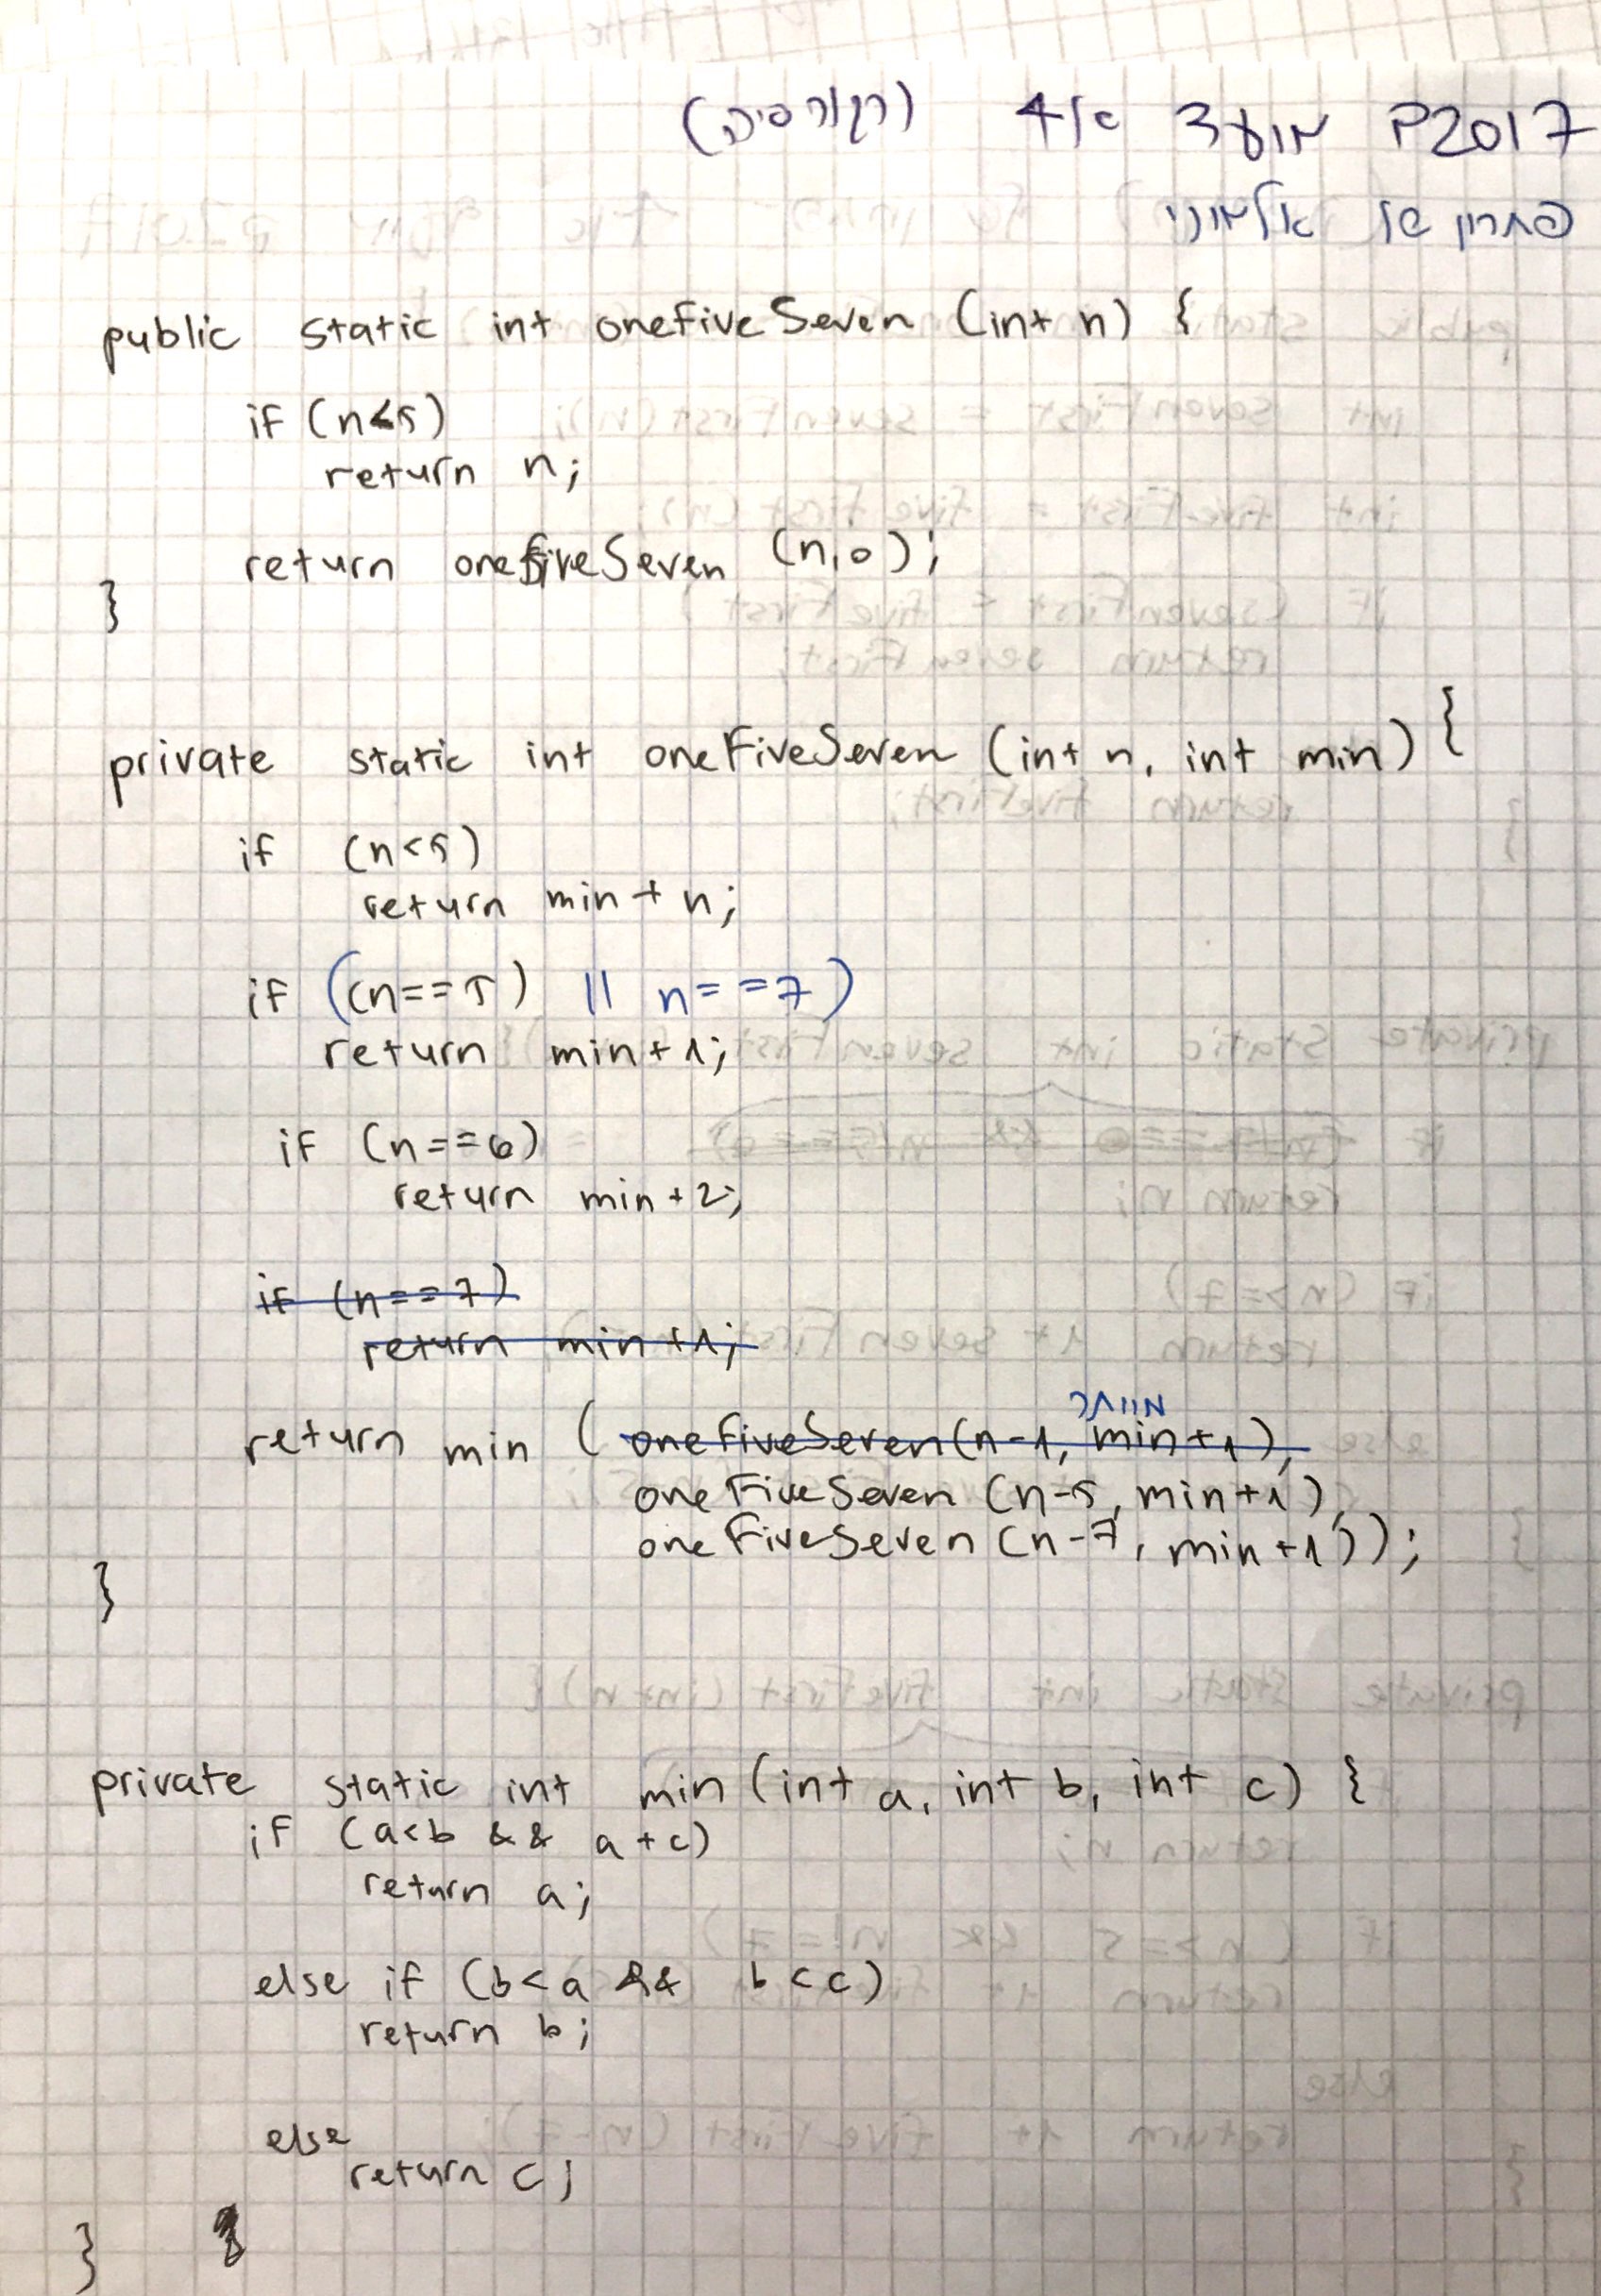 2017ק מועד א 4 (רקורסיה)
פתרון של אלמוני
public static int oneFiveSeven (int n) {
if (n<5)
return n;
return oneFiveSeven (n,0);
}
private static int oneFiveSeven (int n, int min) {
if (n<5)
return min + n;
if ((n==5) || n==7)
return min+1;
if (n==6)
return min+2;
if (n==7)
return min+1;
מיותר
return min (oneFiveSeven(n-1, min+1),
oneFiveSeven (n-5, min+1),
oneFiveSeven (n-7, min+1));
}
private static int min (int a, int b, int c) {
if (a<b && a+c)
return a;
else if (b<a && b<c)
return b;
else
return c;
}